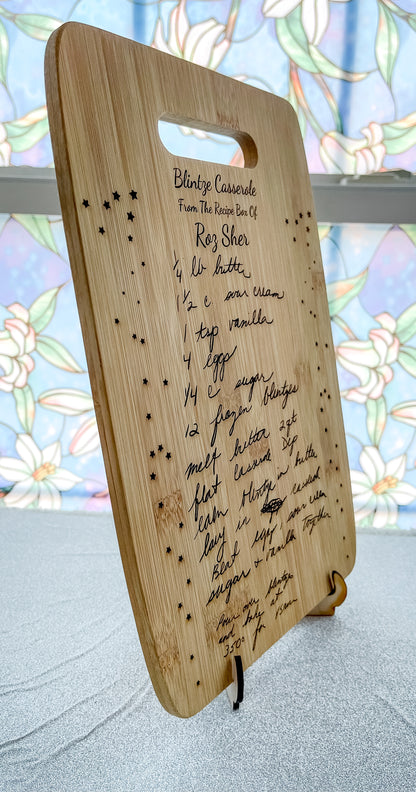 Blintze Casserole
From The Recipe Box Of
Roz Sher
1/4 lb butter
1 1/2 c sour cream
1 tsp vanilla
4 eggs
1/4 c sugar
12 frozen blintzes
melt butter 2qt
flat casserole dip
each blintze in butter
lay in casserole
Beat eggs sour cream
sugar + vanilla together
Pour over blintzes
and bake at
350° for